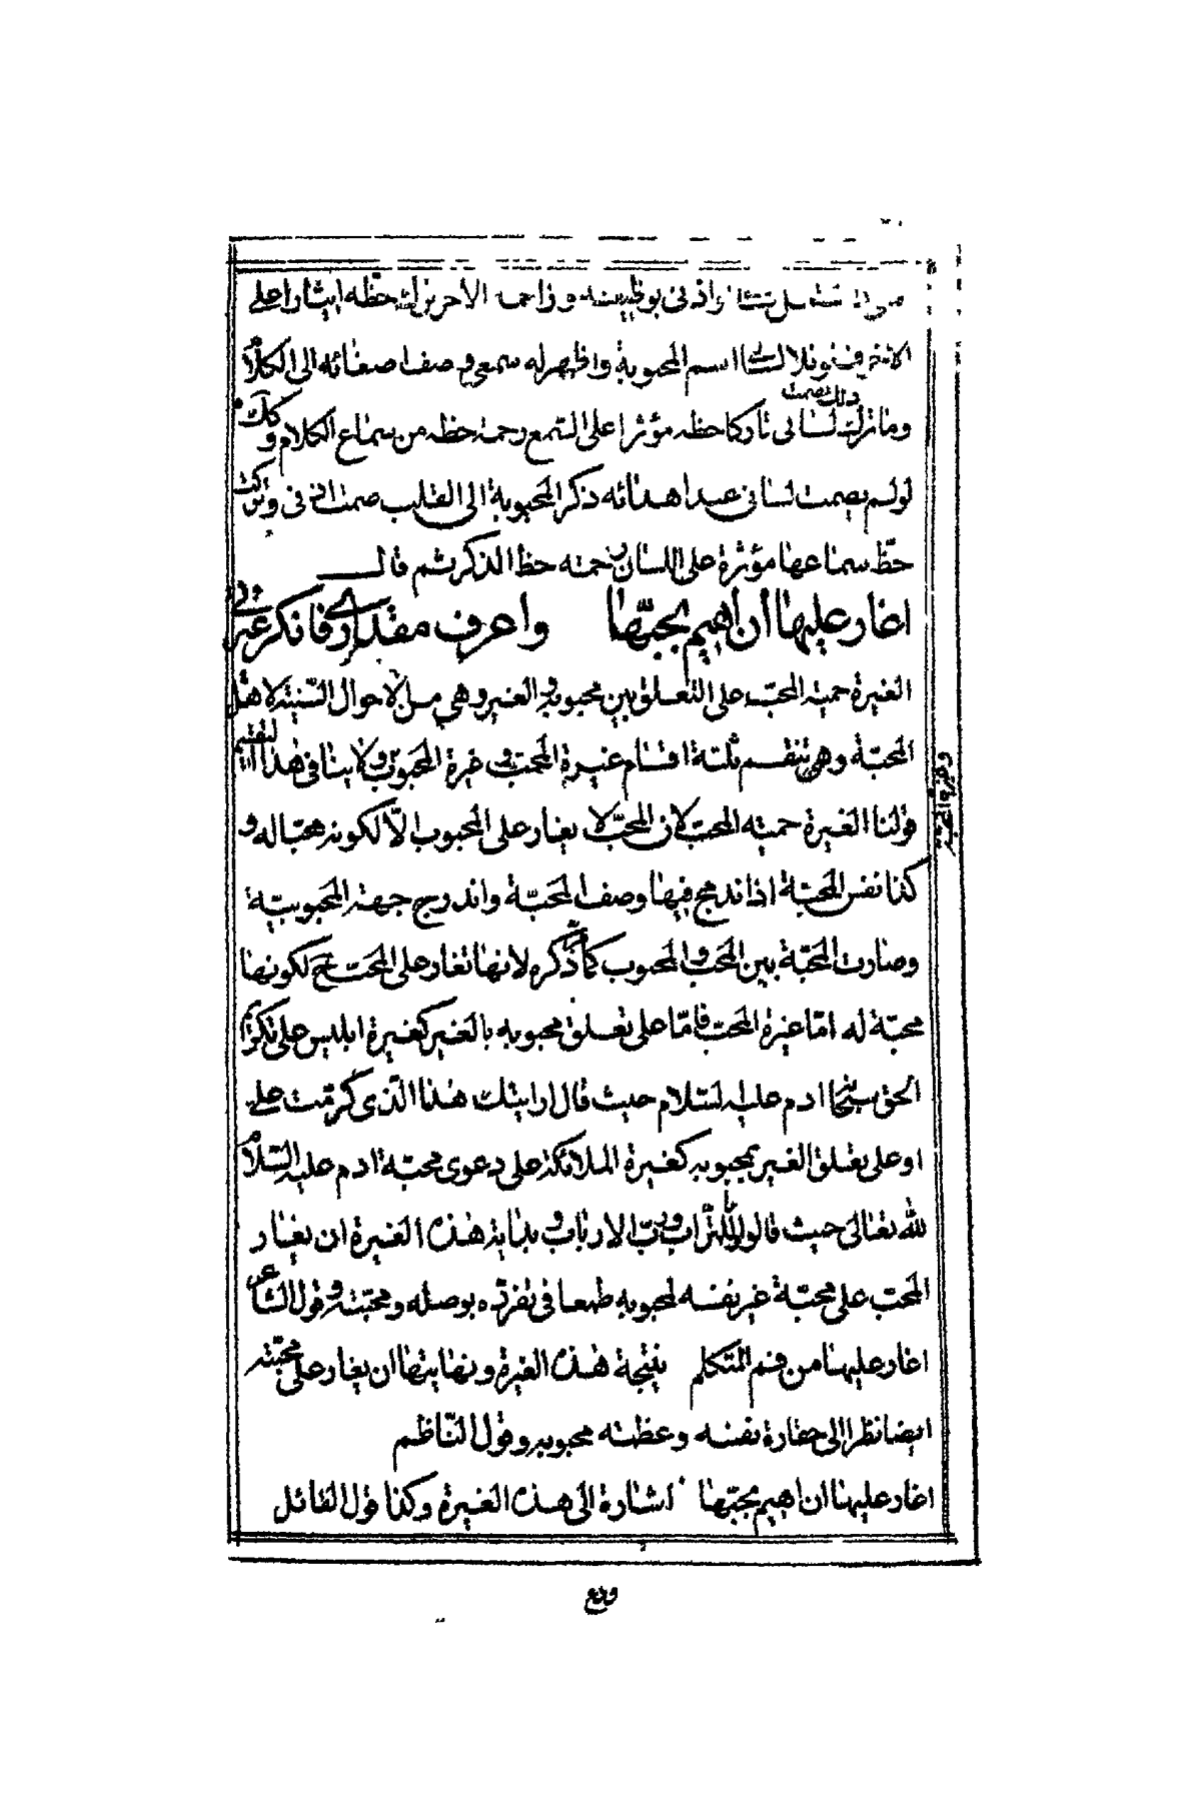 اذنى بوظيفته وزاحمه الآخر بترك حظّه ايثارا على
الآخر فنو تلا لسانى اسم المحبوبة واظهر له سمعى وصف صفائه الى الكلام
وما ترك لسانى ذلك بصمت تاركا حظه مؤثرا على السمع رحمة حظه من سماع الكلام وكذلك
لو لم يصمت لسانى عند اهدائه ذكر المحبوبة الى القلب صمت اذنى وتركت
حظّ سماعها مؤثرة على اللسان رحمته حظ الذكر ثم قال
اغار عليها أن اهيم بحبّها واعرف مقدارى فانكر غيرتى
الغيرة حمية المحبّ على التعلق بين محبوبه والغير وهى من الاحوال السنية لاهل
المحبّة وهى تنقسم ثلثة اقسام غيرة المحب وغيرة المحبوب ولا ينافى هذا التقسيم
وغيرة المحبة
قولنا الغيرة حمية المحب لان المحبّ لا يغار على المحبوب الّا لكونه محبّا له و
كذا نفس المحبّة اذا اندمج فيها وصف المحبّة واندرج جهة المحبوبيّة
وصارت المحبّة بين المحب والمحبوب كما ذكر لانها تغار على المحبّ ح لكونها
محبّة له امّا غيرة المحب فامّا على تعلق محبوبه بالغير كغيرة ابليس على تكرّم
الحق سبحانه ادم عليه السلام حيث قال ارايتك هذا الّذى كرّمت علىّ
او على تعلق الغير بمحبوبه كغيرة الملائكة على دعوى محبّة ادم عليه السّلام
لله تعالى حيث قالوا ما للتّراب وربّ الارباب وبداية هذه الغيرة ان يغار
المحبّ على محبّة غير نفسه لمحبوبه طمعا فى تفرّده بوصله ومحبّته وقول الشاعر
اغار عليها من فم المتكلم نتيجة هذه الغيرة ونهايتها ان يغار على محبّته
ايضا نظرا الى حقارة نفسه وعظمة محبوبه وقول النّاظم
اغار عليها ان اهيم بحبّها اشارة الى هذه الغيرة وكذا قول القائل